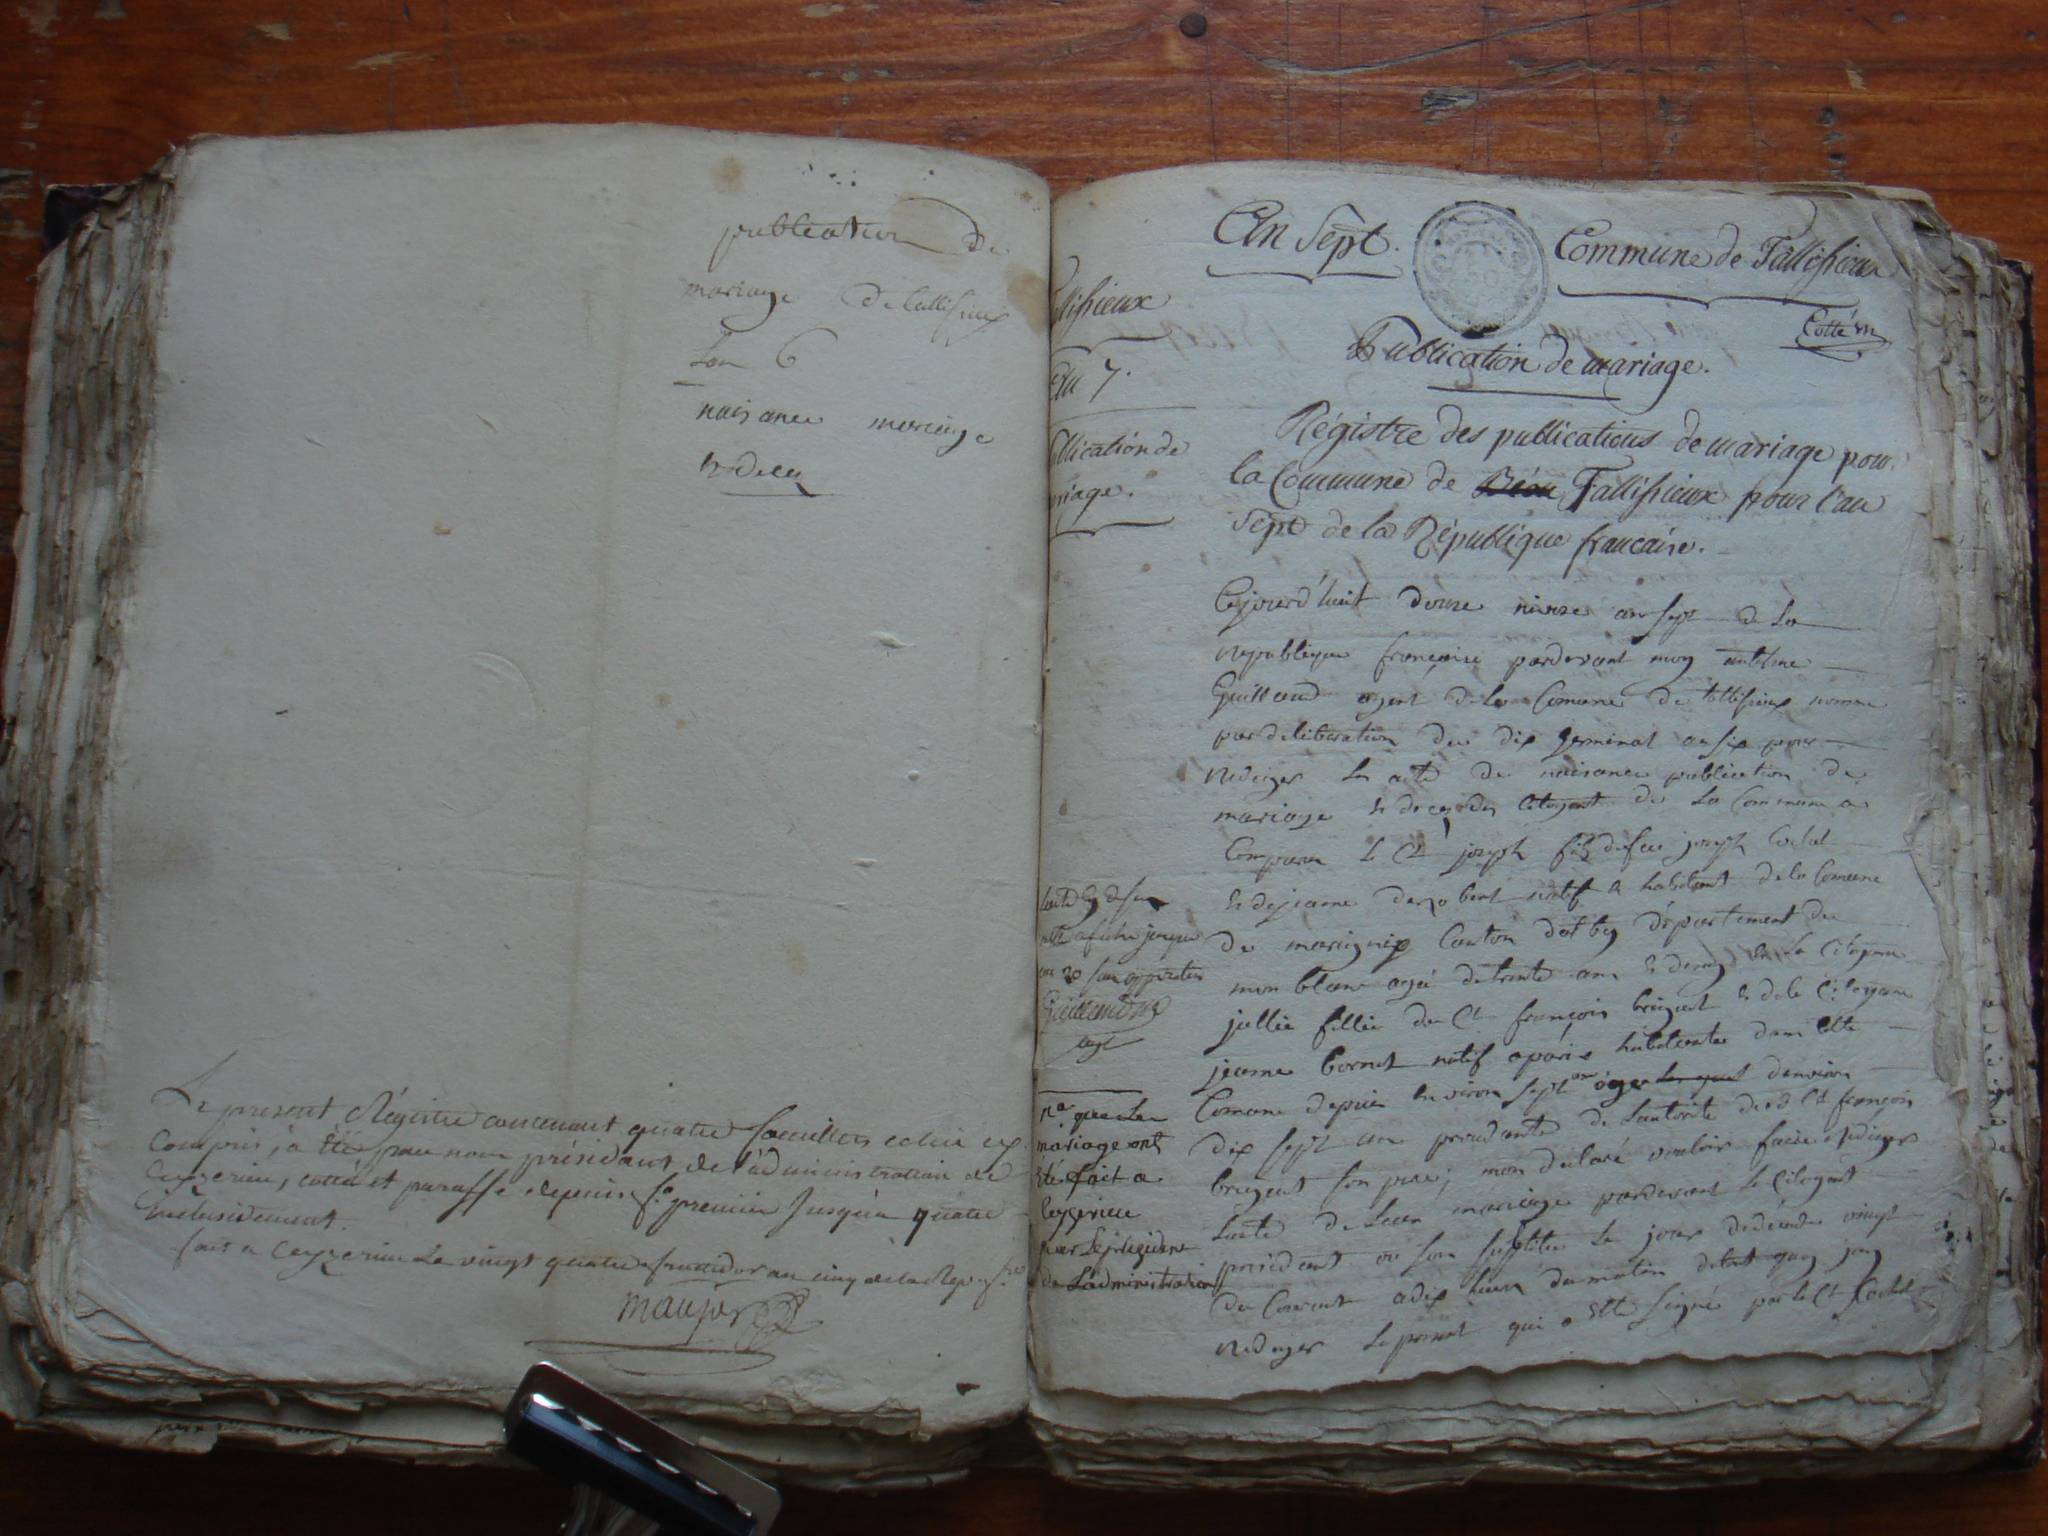 publication de
mariage de tallisieux
Lan 6
naisance mariage
Le present Régistre contenant quatre feuillets celui cy
compris, a été par nous président de l'administration de
Ceyzerieu, cotté et paraffé depuis f.o premier jusqu'a quatre
inclusivement.
fait a Ceyzerieu Le vingt quatre fructidor an cinq de la Rep. f.se
llisieux
7.
blication de
riage.
An Sept.
Commune de Tallissieux
Publication de mariage.
Régistre des publications de mariage pour
la Commune de Béon Tallissieux pour l'an
Sept de la République francaise.
Cejourd'huit douze nivose an sept de La
republique françoise pardevant moy antelme
Guillaud agent de la Comune de tallisieux nomme
par deliberation du dix germinal an six pour
rediger les acte de naisance publication de
mariage et deces des Citoyent de La Commune a
Comparu le Ct joseph fils de feu joseph
et de jeanne natif et habitant de la Comune
de Canton dalby département du
mon blanc agé de trente ans et demy et La Citoyene
jullie fillie du Ct françois et de la Citoyene
jeanne natif a paris habitante dans cette
Comune depuis environ sept ans agee denviron
dix sept ans de Lautorite dud Ct francois
son pere, mon declaré vouloir faire rediger
Lacte de Leur mariage pardevant le Citoyent
président ou son le jour de décade vingt
du Courant a dix heure du matin dequoy jay
rediger Le present qui a ette signé par le Ct
afiche jusque
au 20 san opposition
agt
que Les
mariage ont
été fait a
Ceyzerieu
par Le president
de Ladministration